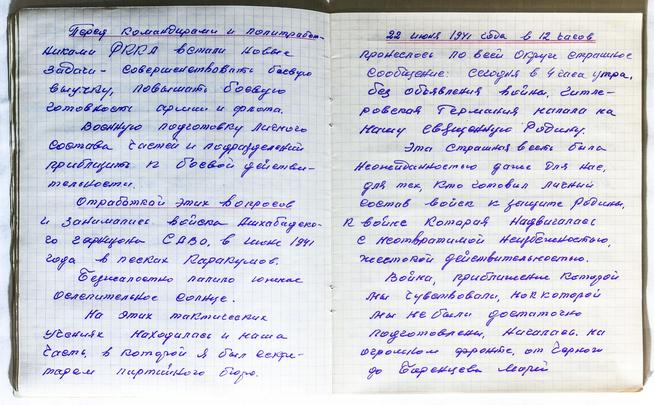 Перед командирами и политработ-
никами РККА встали новые
задачи - совершенствовать боевую
выучку, повышать боевую
готовность армии и флота.
Военную подготовку личного
состава частей и подразделений
приблизить к боевой действи-
тельности.
Отработкой этих вопросов
и занимались войска Ашхабадско-
го гарнизона САВО, в июне 1941
года в песках Каракумов.
Безжалостно палило южное
ослепительное солнце.
На этих тактических
учениях находилась и наша
часть, в которой я был секре-
тарем партийного бюро.
22 июня 1941 года в 12 часов
пронеслось по всей округе страшное
сообщение: сегодня в 4 часа утра,
без объявления войны, гитле-
ровская Германия напала на
нашу священную Родину.
Эта страшная весть была
неожиданностью даже для нас,
для тех, кто готовил личный
состав войск к защите Родины,
к войне которая надвигалась
с неотвратимой неизбежностью,
жестокой действительностью.
Война, приближение которой
мы чувствовали, но к которой
мы не были достаточно
подготовлены, началась на
огромном фронте, от Черного
до Баренцева морей